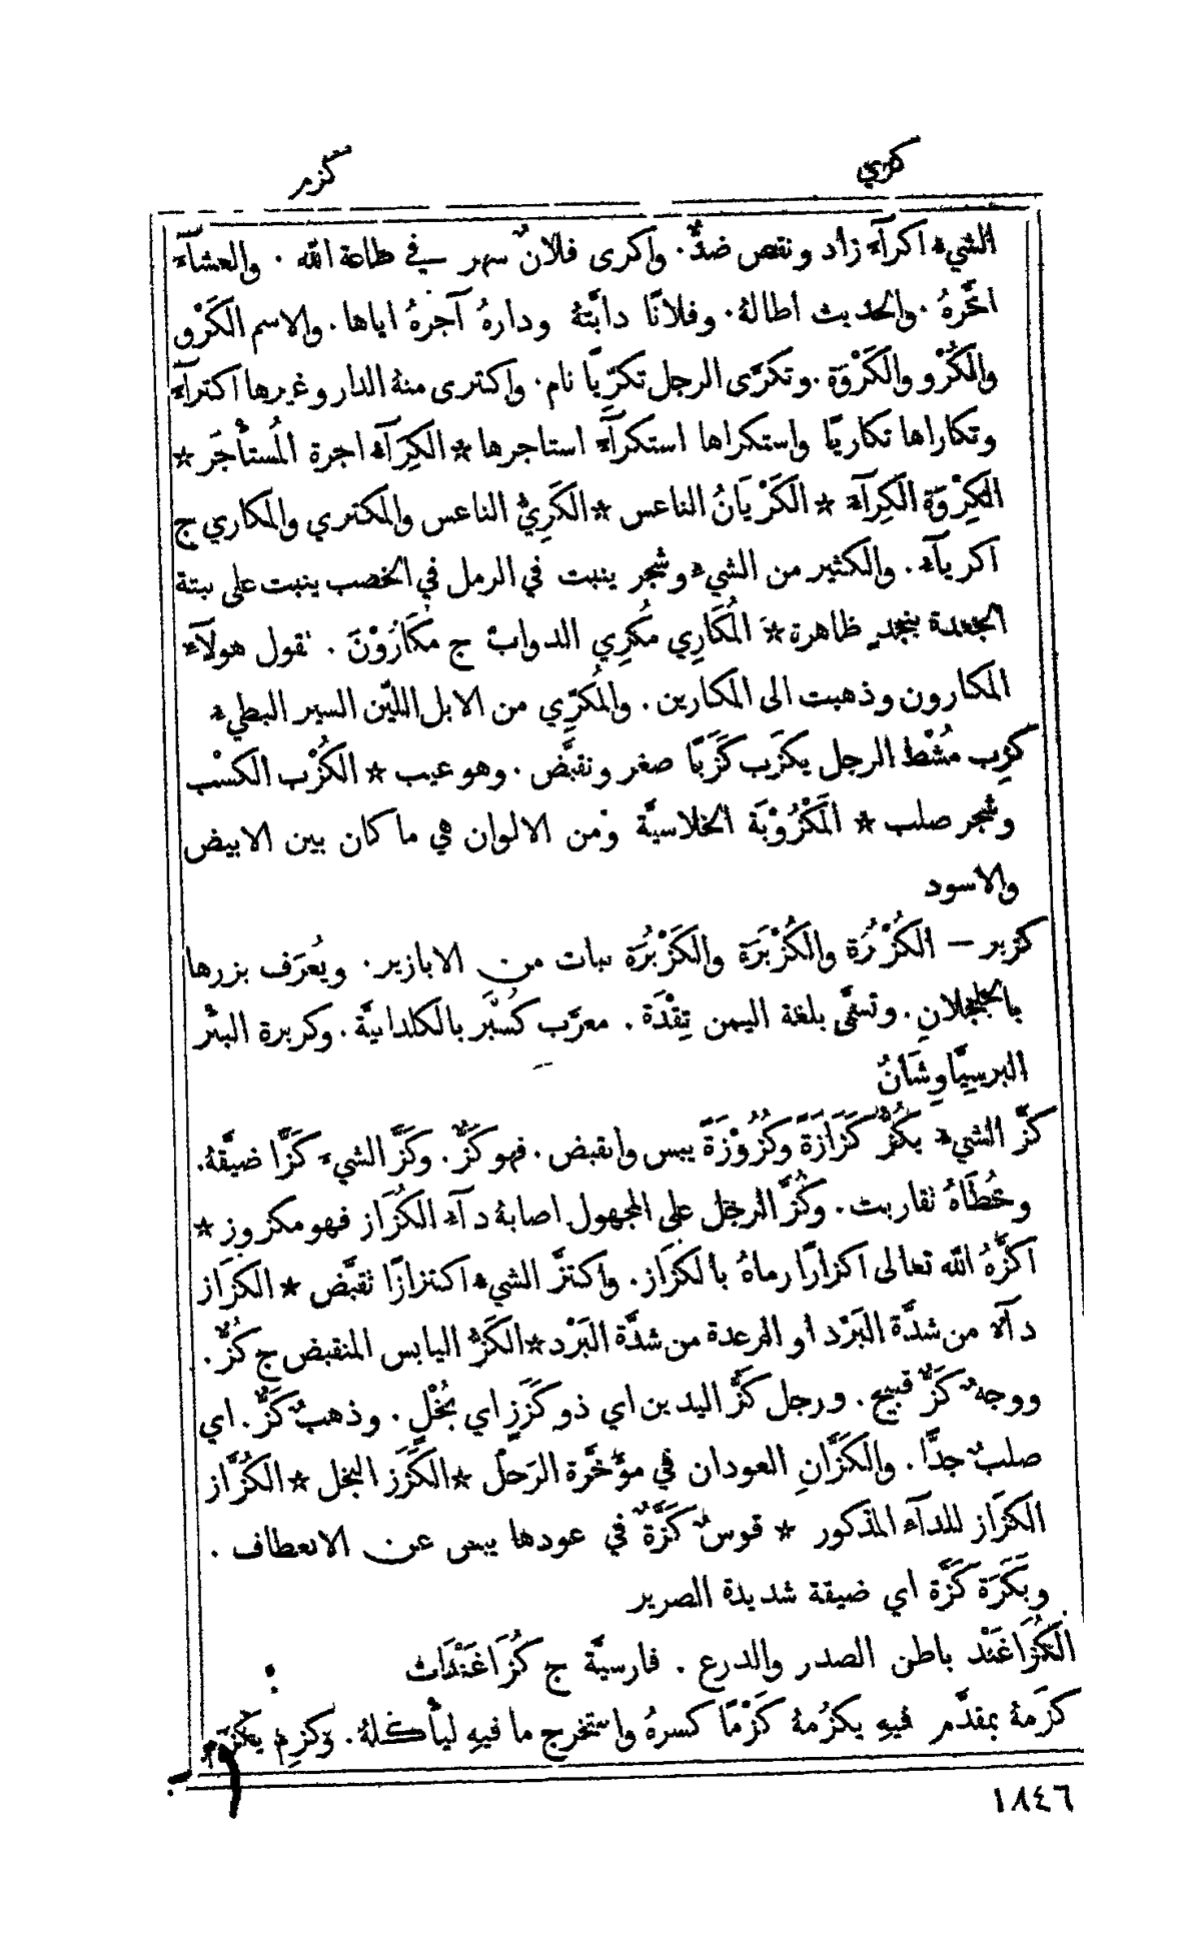 كري
كزم
الشيء اكرآءً زاد ونقص ضدٌّ. واكرى فلانٌ سهر في طاعة الله. والعشآءَ
اخَّرهُ. والحديث اطالهُ. وفلانًا دابَّتهُ ودارهُ آجرهُ اياها. والاسم الكَرْو
والكُرْو والكَرْوَة. وتكرَّى الرجل تكرّيًا نام. واكترى منهُ الدار وغيرها اكترآءً
وتكاراها تكاريًا واستكراها استكرآءً استاجرها * الكِرَآء اجرة المُستأْجَر *
الكِرْوَة الكِرآء * الكَرْيَانُ الناعس * الكَرِيُّ الناعس والمكتري والمكاري ج
اكريآء. والكثير من الشيء وشجر ينبت في الرمل في الخصب ينبت على نبتة
الجعدة بنجدٍ ظاهرة * المُكَارِي مُكرِي الدوابّ ج مُكَارُوْنَ. تقول هولآء
المكارون وذهبت الى المكارين. والمُكرِّي من الابل اللَّيّن السير البطيء
كزِب مُشْط الرجل يكزَب كَزَبًا صغر وتقبَّض. وهو عيب * الكُزْب الكسْب
وشجر صلب * المَكْزُوْبَة الخلاسيَّة ومن الالوان هي ما كان بين الابيض
والاسود
كزبر — الكُزْبُرَة والكُزْبَرَة والكَزْبُرَة نبات من الابازير. ويُعرَف بزرها
بالجلجلان. وتسمَّى بلغة اليمن تِقْدَة. معرَّب كُسْبَر بالكلدانيَّة. وكزبرة البئر
البرسِيَّاوِشَانُ
كزَّ الشيء يكُزُّ كَزَازَةً وكُزُوْزَةً يبس وانقبض. فهو كَزٌّ. وكَزَّ الشيءَ كَزًّا ضيَّقهُ.
وخُطَاهُ تقاربت. وكُزَّ الرجل على المجهول اصابهُ دآء الكُزَاز فهو مكزوز *
اكزَّهُ الله تعالى اكزازًا رماهُ بالكزَاز. واكتزَّ الشيء اكتزازًا تقبَّض * الكزَاز
دآءٌ من شدَّة البَرْد او الرعدة من شدَّة البَرْد * الكَزُّ اليابس المنقبض ج كُزٌّ.
ووجهٌ كَزٌّ قبيح. ورجل كَزُّ اليدين اي ذو كَزَزٍ اي بُخْلٍ. وذهبٌ كَزٌّ. اي
صلبٌ جدًّا. والكَزَّانِ العودان في مؤَخَّرة الرَحْل * الكَزَز البخل * الكُزَّاز
الكزَاز للدآء المذكور * قوسٌ كَزَّةٌ في عودها يبس عن الانعطاف.
وبَكَرَة كَزَّة اي ضيقة شديدة الصرير
الكَزَاغَنْد باطن الصدر والدرع. فارسيَّة ج كُزَاغَنْدَات
كزمهُ بمقدَّم فيهِ يكزُمهُ كَزْمًا كسرهُ واستخرج ما فيهِ ليأْكلهُ. وكزِم يكزَم
١٨٤٦